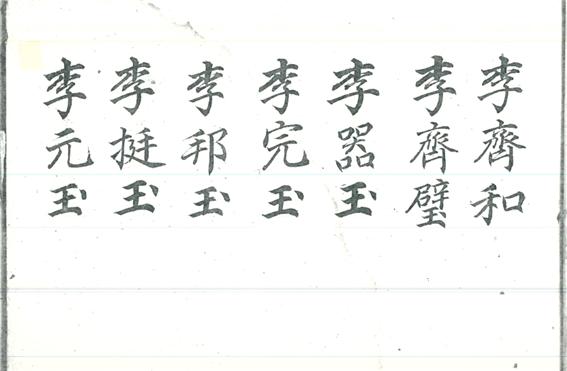 李齊和
李齊璧
李器玉
李完玉
李邦玉
李挺玉
李元玉